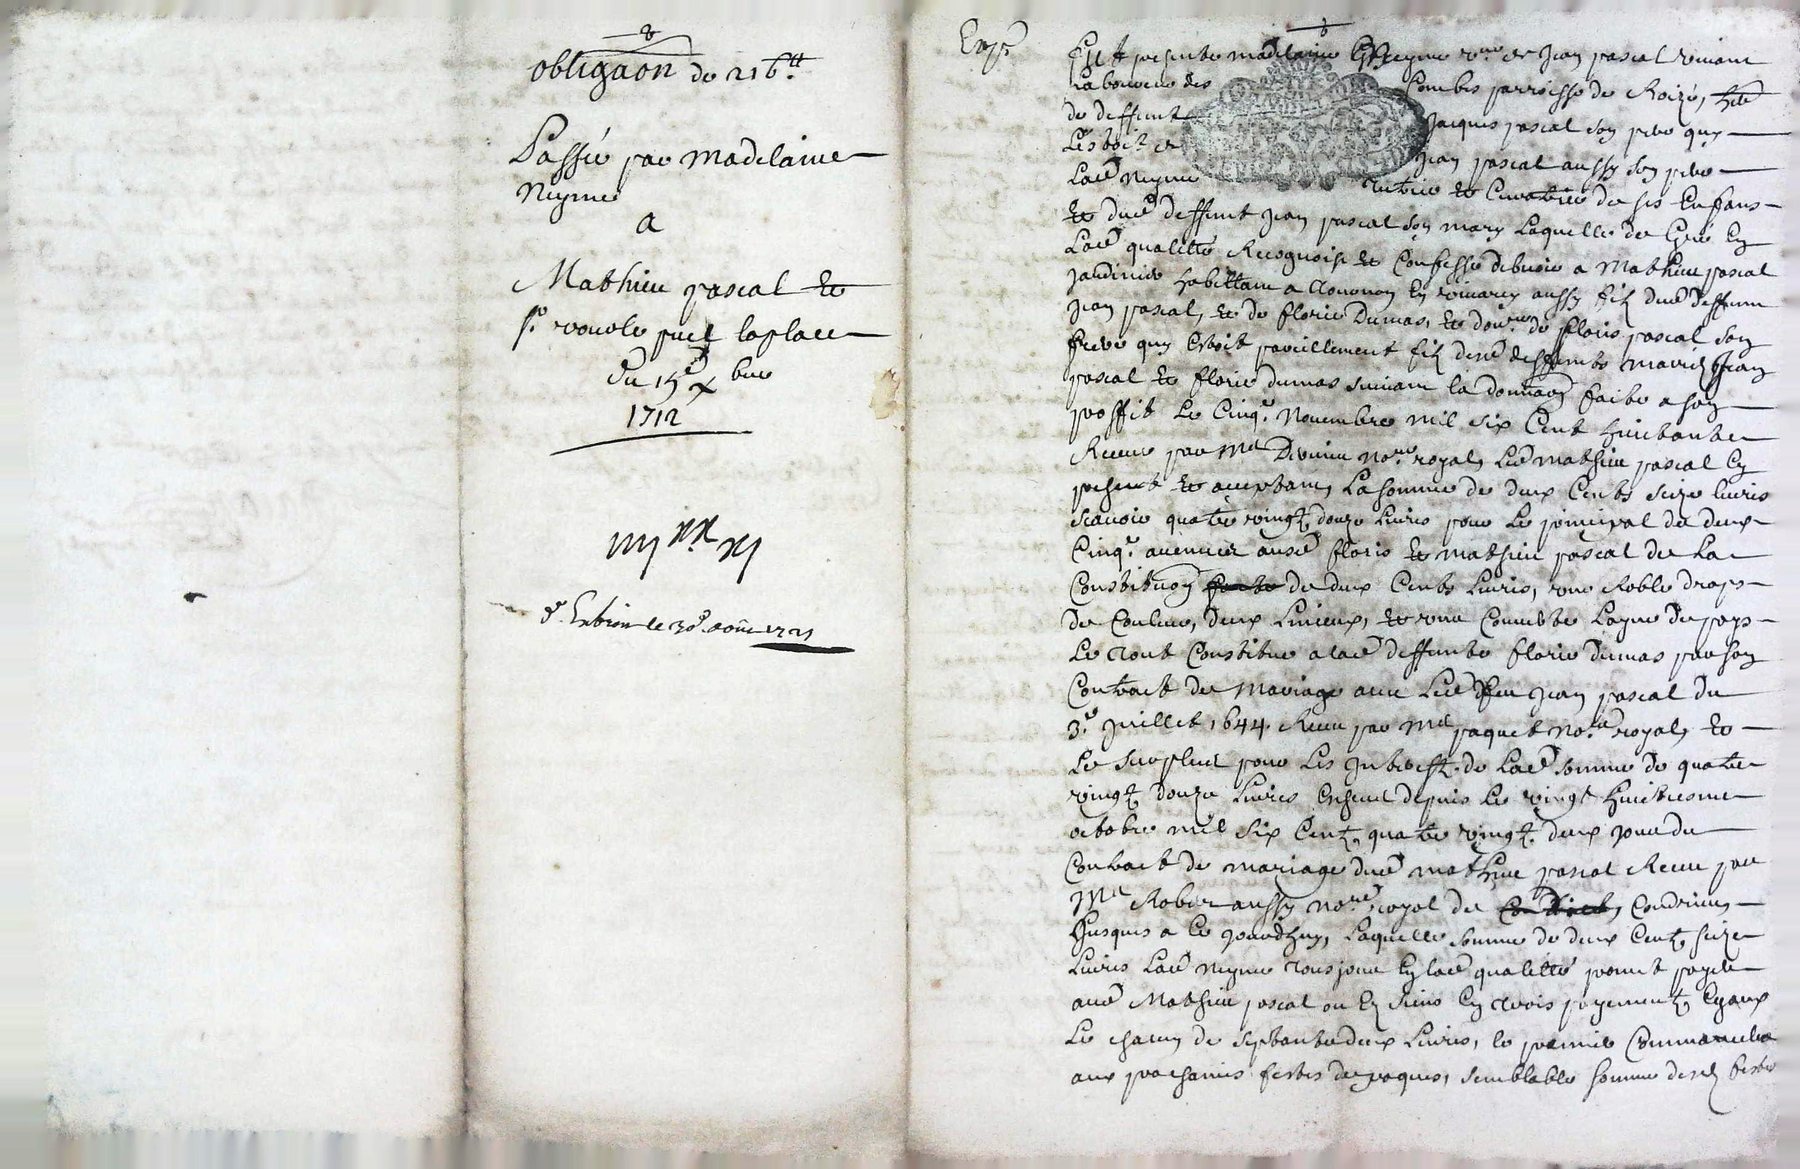 obligaon de 216ᵗᵗ
Passée par Madelaine
Neyme
A
Mathieu pascal et
sʳ
Du 15ᵉ xbre
1712
iiijˣˣ xij
le 30ᵉ aoust 1721
Expᵉ
Fut presente madelaine Neyme vᵛᵉ de Jean pascal vivant
Laboureur des Combes parroisse de Roizé, hère
de deffunt Jacques pascal son pere quy
Lestoit de Jean pascal aussy son pere
Lade Neyme tutrice et Curatrice de ses Enfans
et dud deffunt Jean pascal son mary Laquelle de Gré En
Lade qualitté Recognoist et Confesse debvoir a Mathieu pascal
Jardinier habittant a En vivarez aussy filz dud deffunt
Jean pascal, et de florie Dumas, et donʳᵉ de floris pascal son
frere quy Estoit pareillement filz desd deffunts mariez Jean
pascal et florie dumas suivant la donnaon faite a son
proffit Le Cinqᵉ Novembre mil six Cent huictante
Receue par Mᵉ noʳᵉ royal, Led mathieu pascal En
present et acceptant, La somme de deux Cents seize livres
scavoir quatre vingtz douze Livres pour Le principal de deux
Cinqᵉ avenues ausd floris et mathieu pascal de La
Constituon de deux Cents Livres, une Robbe draps
de Couleur, deux Linceux, et une Couverte Layne du pays
Le tout Constitué a lade deffunte florie dumas par son
Contract de Mariage avec Led feu Jean pascal du
3ᵉ Juillet 1644. Receu par Mᵉ paquet noʳᵉ royal, et
Le surplus pour Les Interestz de Lade somme de quatre
vingtz douze Livres Escheus depuis Le vingt huictiesme
octobre mil six Centz quatre vingtz deux jour du
Contract de mariage dud mathieu pascal Receu par
Mᵉ Rober aussy noʳᵉ royal de Condrieu
Jusques a ce jourdhuy, Laquelle somme de deux Centz seize
Livres Lade Neyme tousjour En lade qualitté promet payer
aud Mathieu pascal ou Es siens En trois payementz Egaux
Le chacun de septante deux Livres, le premier Commancera
aux prochaines festes de paques, semblable somme desd festes